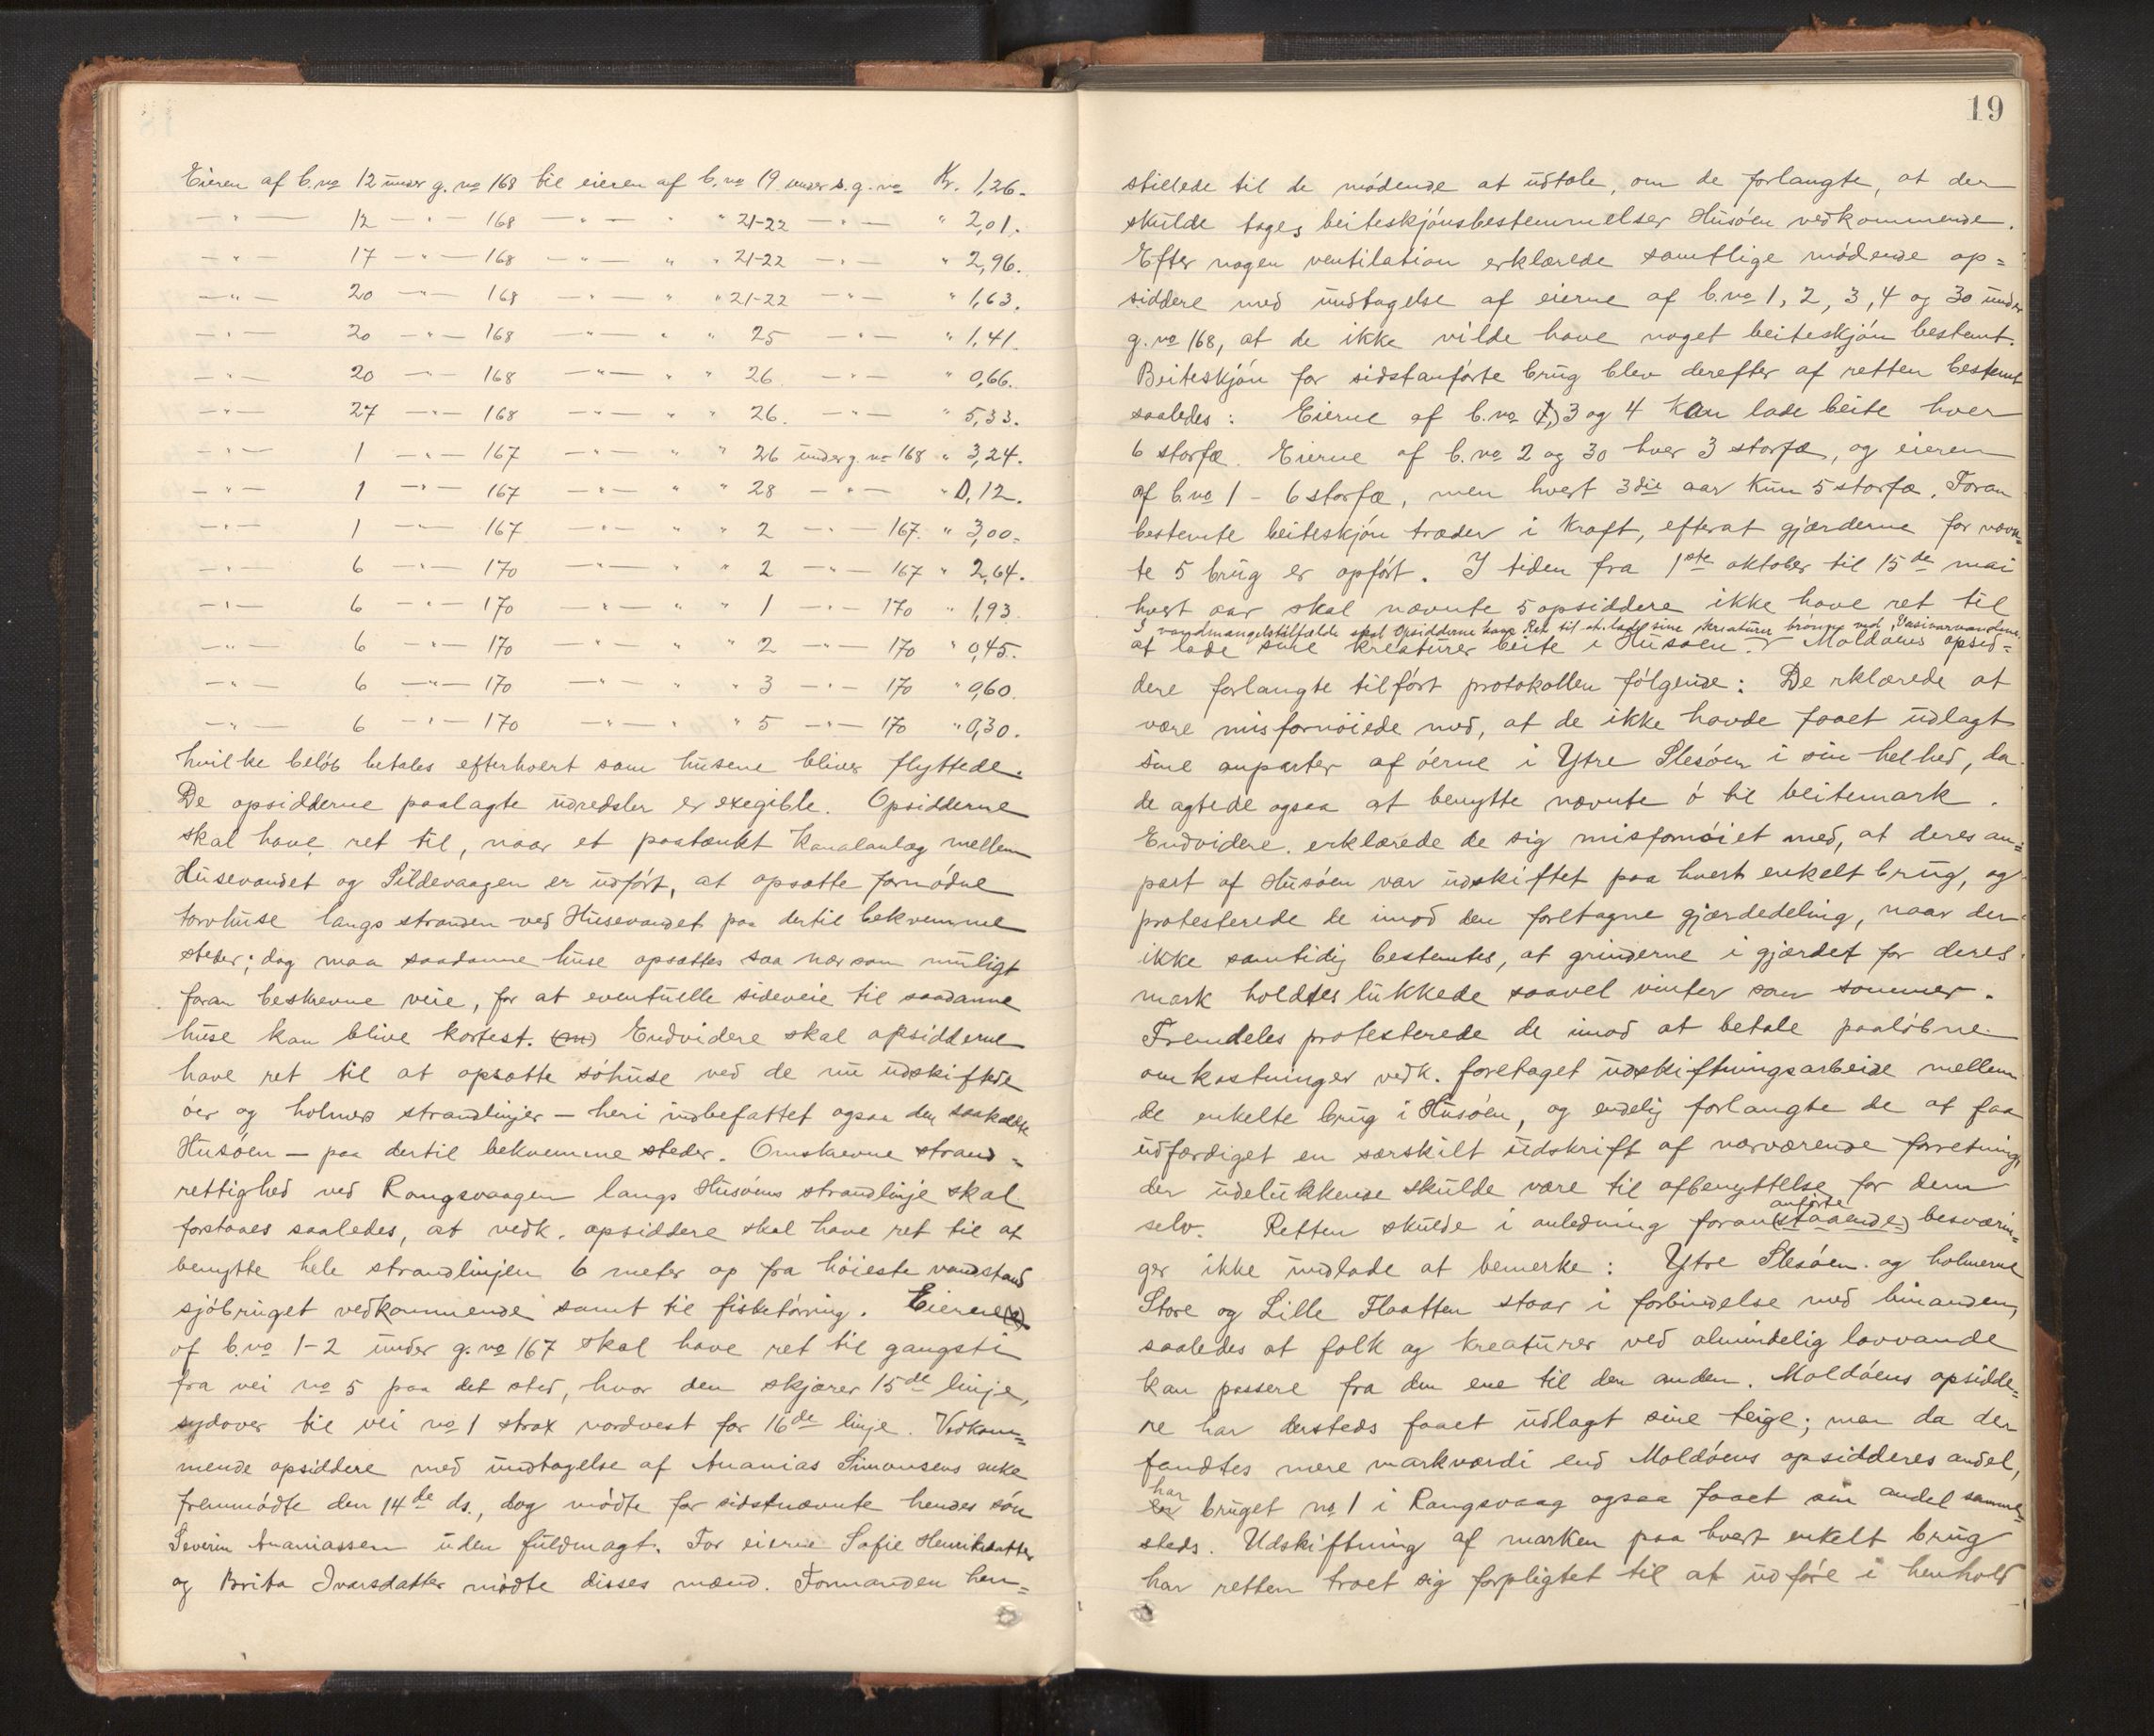 Eieren af b.no 12 under g.no 168 til eieren af b.no 19 under s.g.no Kr. 1,26.
— " — 12 — " — 168 — " — " " 21-22 — " — " 2,01.
— " — 17 — " — 168 — " — " " 21-22 — " — " 2,96.
— " — 20 — " — 168 — " — " " 21-22 — " — " 1,63.
— " — 20 — " — 168 — " — " " 25 — " — " 1,41.
— " — 20 — " — 168 — " — " " 26 — " — " 0,66.
— " — 27 — " — 168 — " — " " 26. — " — " 5,33.
— " — 1 — " — 167 — " — " " 26 under g.no 168 " 3,24.
— " — 1 — " — 167 — " — " " 28 — " — " 0,12.
— " — 1 — " — 167 — " — " " 2 — " — 167. " 3,00.
— " — 6 — " — 170 — " — " " 2 — " — 167 " 2,64.
— " — 6 — " — 170 — " — " " 1 — " — 170 " 1,93
— " — 6 — " — 170 — " — " " 2 — " — 170 " 0,45.
— " — 6 — " — 170 — " — " " 3 — " — 170 " 0,60.
— " — 6 — " — 170 — " — " " 5 — " — 170 " 0,30.
hvilke beløb betales efterhvert som husene bliver flyttede.
De opsidderne paalagte udredsler er exegible. Opsidderne
skal have ret til, naar et paatænkt kanalanlæg mellem
Husevandet og Sildevaagen er udført, at opsætte fornødne
torvhuse langs stranden ved Husevandet paa dertil bekvemme
steder; dog maa saadanne huse opsættes saa nær som muligt
foran beskrevne veie, for at eventuelle sideveie til saadanne
huse kan blive kortest. (en) Endvidere skal opsidderne
have ret til at opsætte søhuse ved de nu udskiftede
øer og holmers strandlinjer — heri indbefattet ogsaa den saakaldte
Husøen — paa dertil bekvemme steder. Omskrevne strand=
rettighed ved Rongsvaagen langs Husøens strandlinje skal
forstaaes saaledes, at vedk. opsiddere skal have ret til at
benytte hele strandlinjen 6 meter op fra høieste vandstand
sjøbruget vedkommende samt til fisketørring. Eierne(e).
af b.no 1-2 under g.no 167 skal have ret til gangsti
fra vei no 5 paa det sted, hvor den skjærer 15de linje,
sydover til vei no 1 strax nordvest for 16de linje. Vedkom=
mende opsiddere med undtagelse af Ananias Simonsens enke
fremmødte den 14de ds., dog mødte for sidstnævnte hendes søn
Severin Ananiassen uden fuldmagt. For eierne Sofie Henriksdatter
og Brita Ivarsdatter mødte disses mænd. Formanden hen=
19
stillede til de mødende at udtale, om de forlangte, at der
skulde tages beiteskjønsbestemmelser Husøen vedkommende.
Efter nogen ventilation erklærede samtlige mødende op=
siddere med undtagelse af eierne af b.no 1, 2, 3, 4 og 30 under
g.no 168, at de ikke vilde have noget beiteskjøn bestemt.
Beiteskjøn for sidstanførte brug blev derefter af retten bestemt
saaledes: Eierne af b.no (1,) 3 og 4 kan lade beite hver
6 storfæ. Eierne af b.no 2 og 30 hver 3 storfæ, og eieren
af b.no 1 - 6 storfæ, men hvert 3die aar kun 5 storfæ. Foran
bestemte beiteskjøn træder i kraft, efterat gjærderne for nævn=
te 5 brug er opført. I tiden fra 1ste oktober til 15de mai
hvert aar skal nævnte 5 opsiddere ikke have ret til
I vandmangelstilfælde skal Opsidderne have Ret til at lade sine Kreaturer brønne ved
at lade sine kreaturer beite i Husøen. Moldøens opsid=
dere forlangte tilført protokollen følgende: De rklærede at
være misfornøiede med, at de ikke havde faaet udlagt
sine anparter af øerne i Ytre Slesøen i sin helhed, da
de agtede ogsaa at benytte nævnte ø til beitemark.
Endvidere erklærede de sig misfornøiet med, at deres an=
part af Husøen var udskiftet paa hvert enkelt brug, og
protesterede de imod den foretagne gjærdedeling, naar der
ikke samtidig bestemtes, at grinderne i gjærdet for deres
mark holdtes lukkede saavel vinter som sommer.
Fremdeles protesterede de imod at betale paaløbne
omkostninger vedk. foretaget udskiftningsarbeide mellem
de enkelte brug i Husøen, og endelig forlangte de at faa
udfærdiget en særskilt udskrift af nærværende forretning,
der udelukkende skulde være til afbenyttelse for dem
anførte
selv. Retten skulde i anledning foran(staaende) besværin=
ger ikke undlade at bemerke: Ytre Slesøen og holmerne
Store og Lille Flaatten staar i forbindelse med hinanden,
saaledes at folk og kreaturer ved almindelig lavvande
kan passere fra den ene til den anden. Moldøens opsidde=
re har dersteds faaet udlagt sine teige; men da der
fandtes mere markværdi end Moldøens opsidderes andel,
har
er bruget no 1 i Rongsvaag ogsaa faaet sin andel samme=
steds. Udskiftning af marken paa hvert enkelt brug
har retten troet sig forpligtet til at udføre i henhold